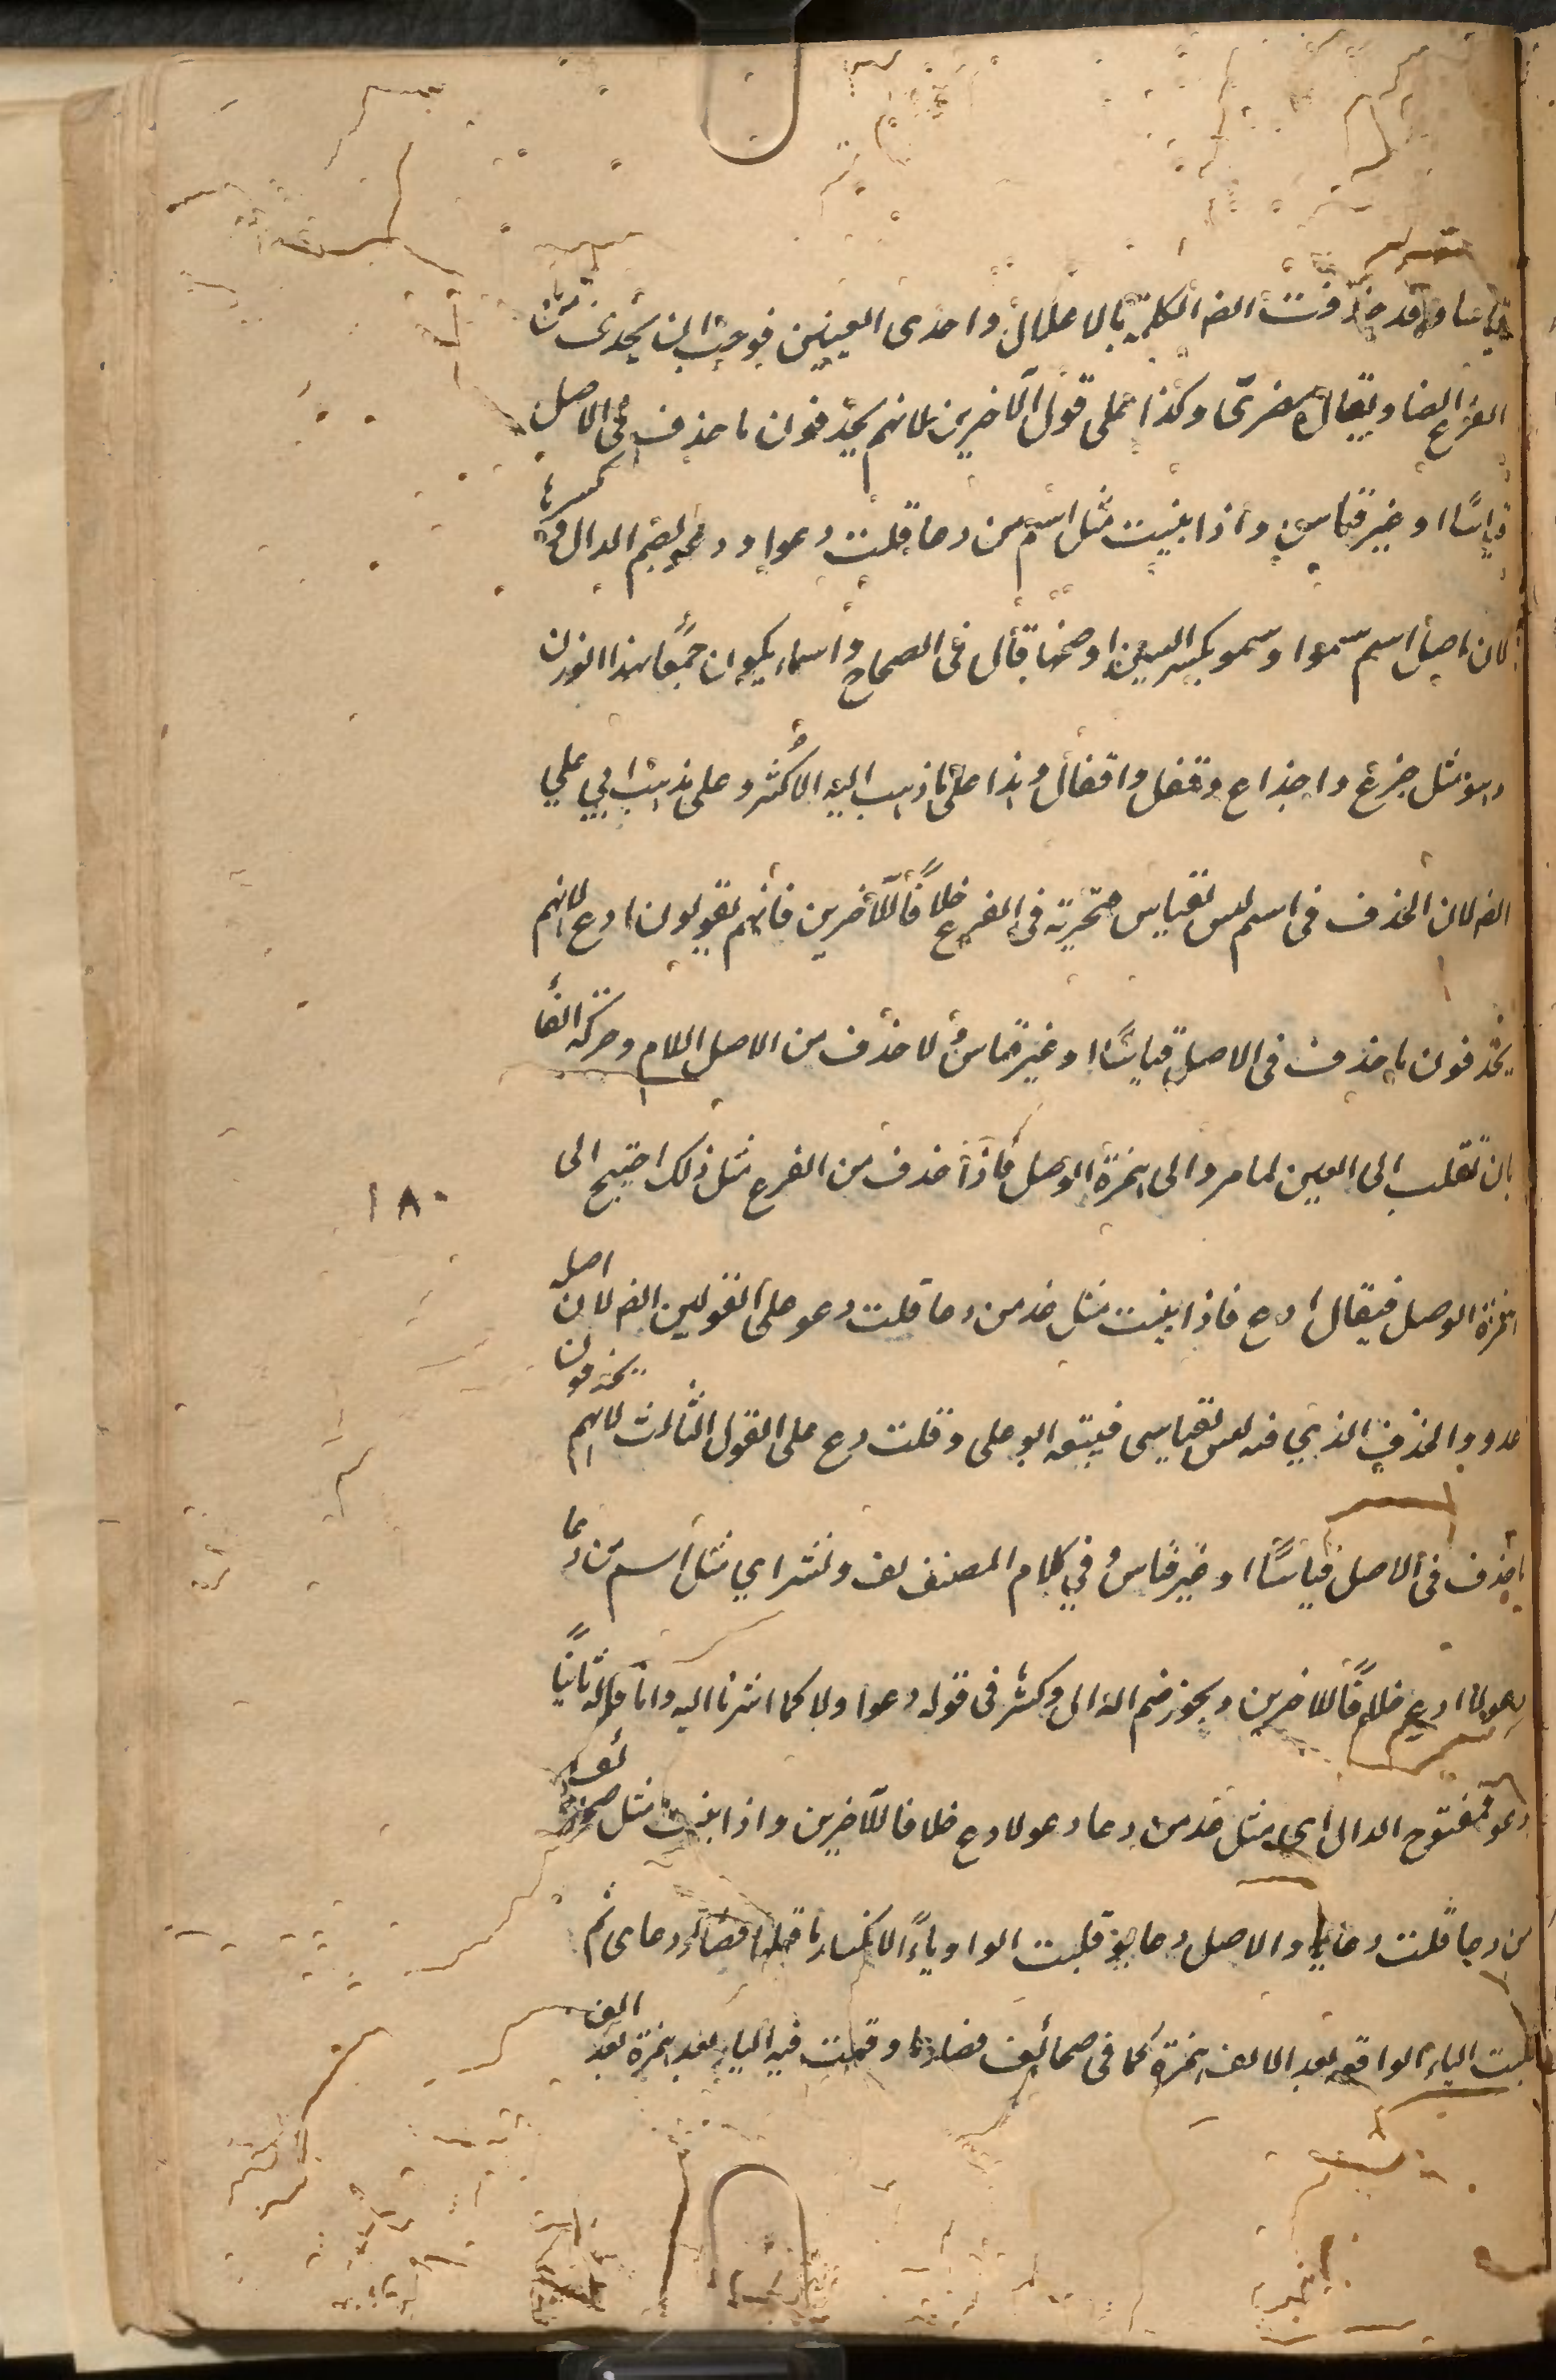 قياسا وقد حذفت الف الكلمة بالاعلال واحدى العينين فوجب ان يحذف من
الفرع ايضا ويقال مضرى وكذا على قول الآخرين لانهم يحذفون ما حذف فى الاصل
قياسًا او غير قياس واذا بنيت مثل اسم من دعا قلت دعو او دعو بضم الدال وكسرها
لان اصل اسم سموا وسمو بكسر السين او ضمها قال فى الصحاح واسماء يكون جمعًا لهذا الوزن
وهو مثل جذع واجذاع وقفل واقفال وهذا على ما ذهب اليه الاكثر وعلى مذهب ابي علي
ايض لان الحذف فى اسم ليس بقياس فى الفرع خلافًا للآخرين فانهم يقولون ادع لانهم
يحذفون ما حذف فى الاصل قياسًا او غير قياس ولا حذف من الاصل اللام وحركة الفا
بان تقلب الى العين لما مر والى همزة الوصل فاذا حذف من الفرع مثل ذلك احتيج الى
١٨٠
همزة الوصل فيقال ادع فاذا بنيت مثل غد من دعا قلت دعو على القولين ايض لان اصل
غد غدو والحذف الذي فيه ليس بقياسى فيتبعه ابو على وقلت دع على القول الثالث لانهم يحذفون
ما حذف فى الاصل قياسًا او غير قياس وفي كلام المصنف لف ونشر اي مثل اسم من دعا
دعو لا ادع خلافًا للآخرين ويجوز ضم الدال وكسر فى قوله دعو اولا كما اشرنا اليه واما قوله ثانيًا
دعو فمفتوح الدال اى مثل غد من دعا دعو لا دع خلافا للآخرين واذا بنيت مثل صحائف
من دعا قلت دعايا والاصل دعايو قلبت الواو ياءً لانكسار ما قبلها فصار دعايى ثم
قلبت الياء الواقعه بعد الالف همزة كما فى صحائف فصار وقعت فيه الياء بعد همزة بعد الف